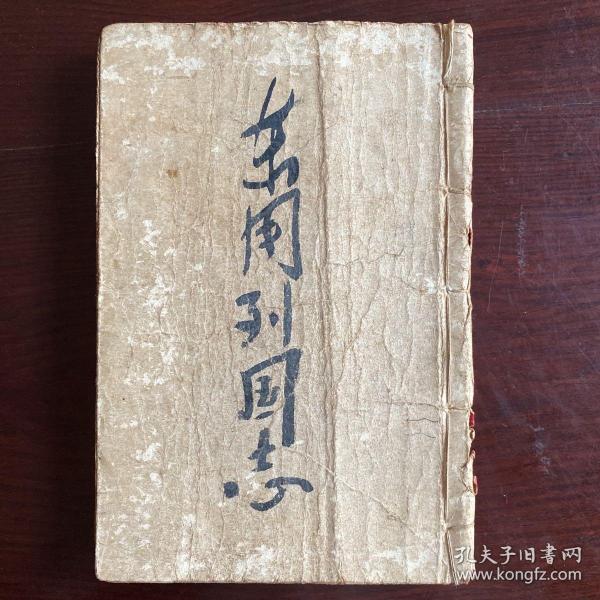 东周列国志
孔夫子旧書网
www.kongfz.com